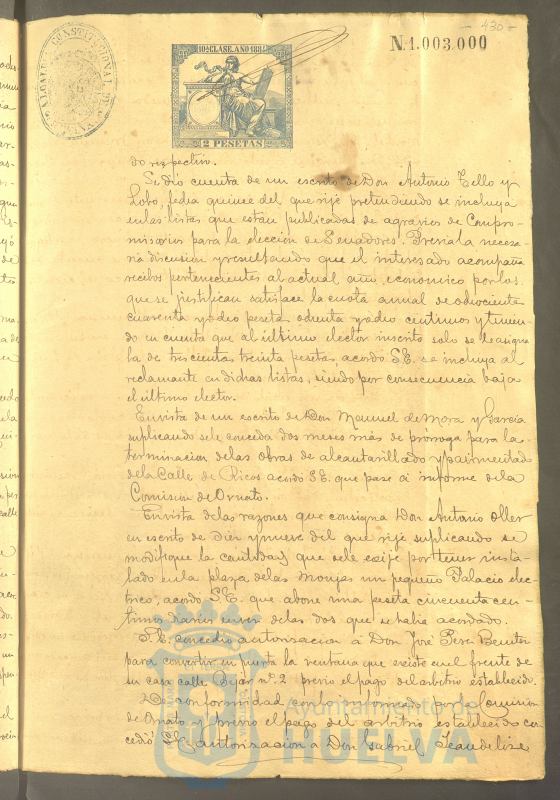 - 430 -
N.1.003.000
ALCALDIA CONSTITUCIONAL DE
10ª CLASE. AÑO 1884
2 PESETAS
do respectivo.
Se dió cuenta de un escrito de Don Antonio Tello y
Lobo, fecha quince del que rije pretendiendo se incluya
en las listas que estan publicadas de agravios de Compro-
misarios para la elección de Senadores. Prévia la necesa-
ria discusion y resultando que el interesado acompaña
recibos pertenecientes al actual año economico por los
que se justifican satisface la cuota anual de ochocienta
cuarenta y ocho pesetas ochenta y ocho centimos y tenien-
do en cuenta que al ultimo elector inscrito solo se le asigna
la de trescientas treinta pesetas, acordó S.E. se incluya al
reclamante en dichas listas, siendo por consecuencia baja
el ultimo elector.
En vista de un escrito de Don Manuel de Mora y Garcia
suplicando se le conceda dos meses más de prórroga para la
terminacion de las obras de alcantarillado y pavimentad
de la Calle de Ricos acordó S.E. que pase á informe de la
Comision de Ornato.
En vista de las razones que consigna Don Antonio Oller
en escrito de diez y nueve del que rije suplicando se
modifique la cantidad que se le exije por tener insta-
lado en la plaza de las Monjas un pequeño Palacio elec-
trico, acordó S.E. que abone una peseta cincuenta cen-
timos diarios en vez de las dos que se habia acordado.
S.E. concedió autorizacion á Don José Perez Benitez
para convertir en puerta la ventana que existe en el frente de
su casa calle Bejar nº. 2 previo el pago del arbitrio establecido.
De conformidad con lo informado por la Comision
de Ornato y previo el pago del arbitrio establecido con-
cedió S.E. autorizacion á Don Gabriel
Ayuntamiento de
HUELVA